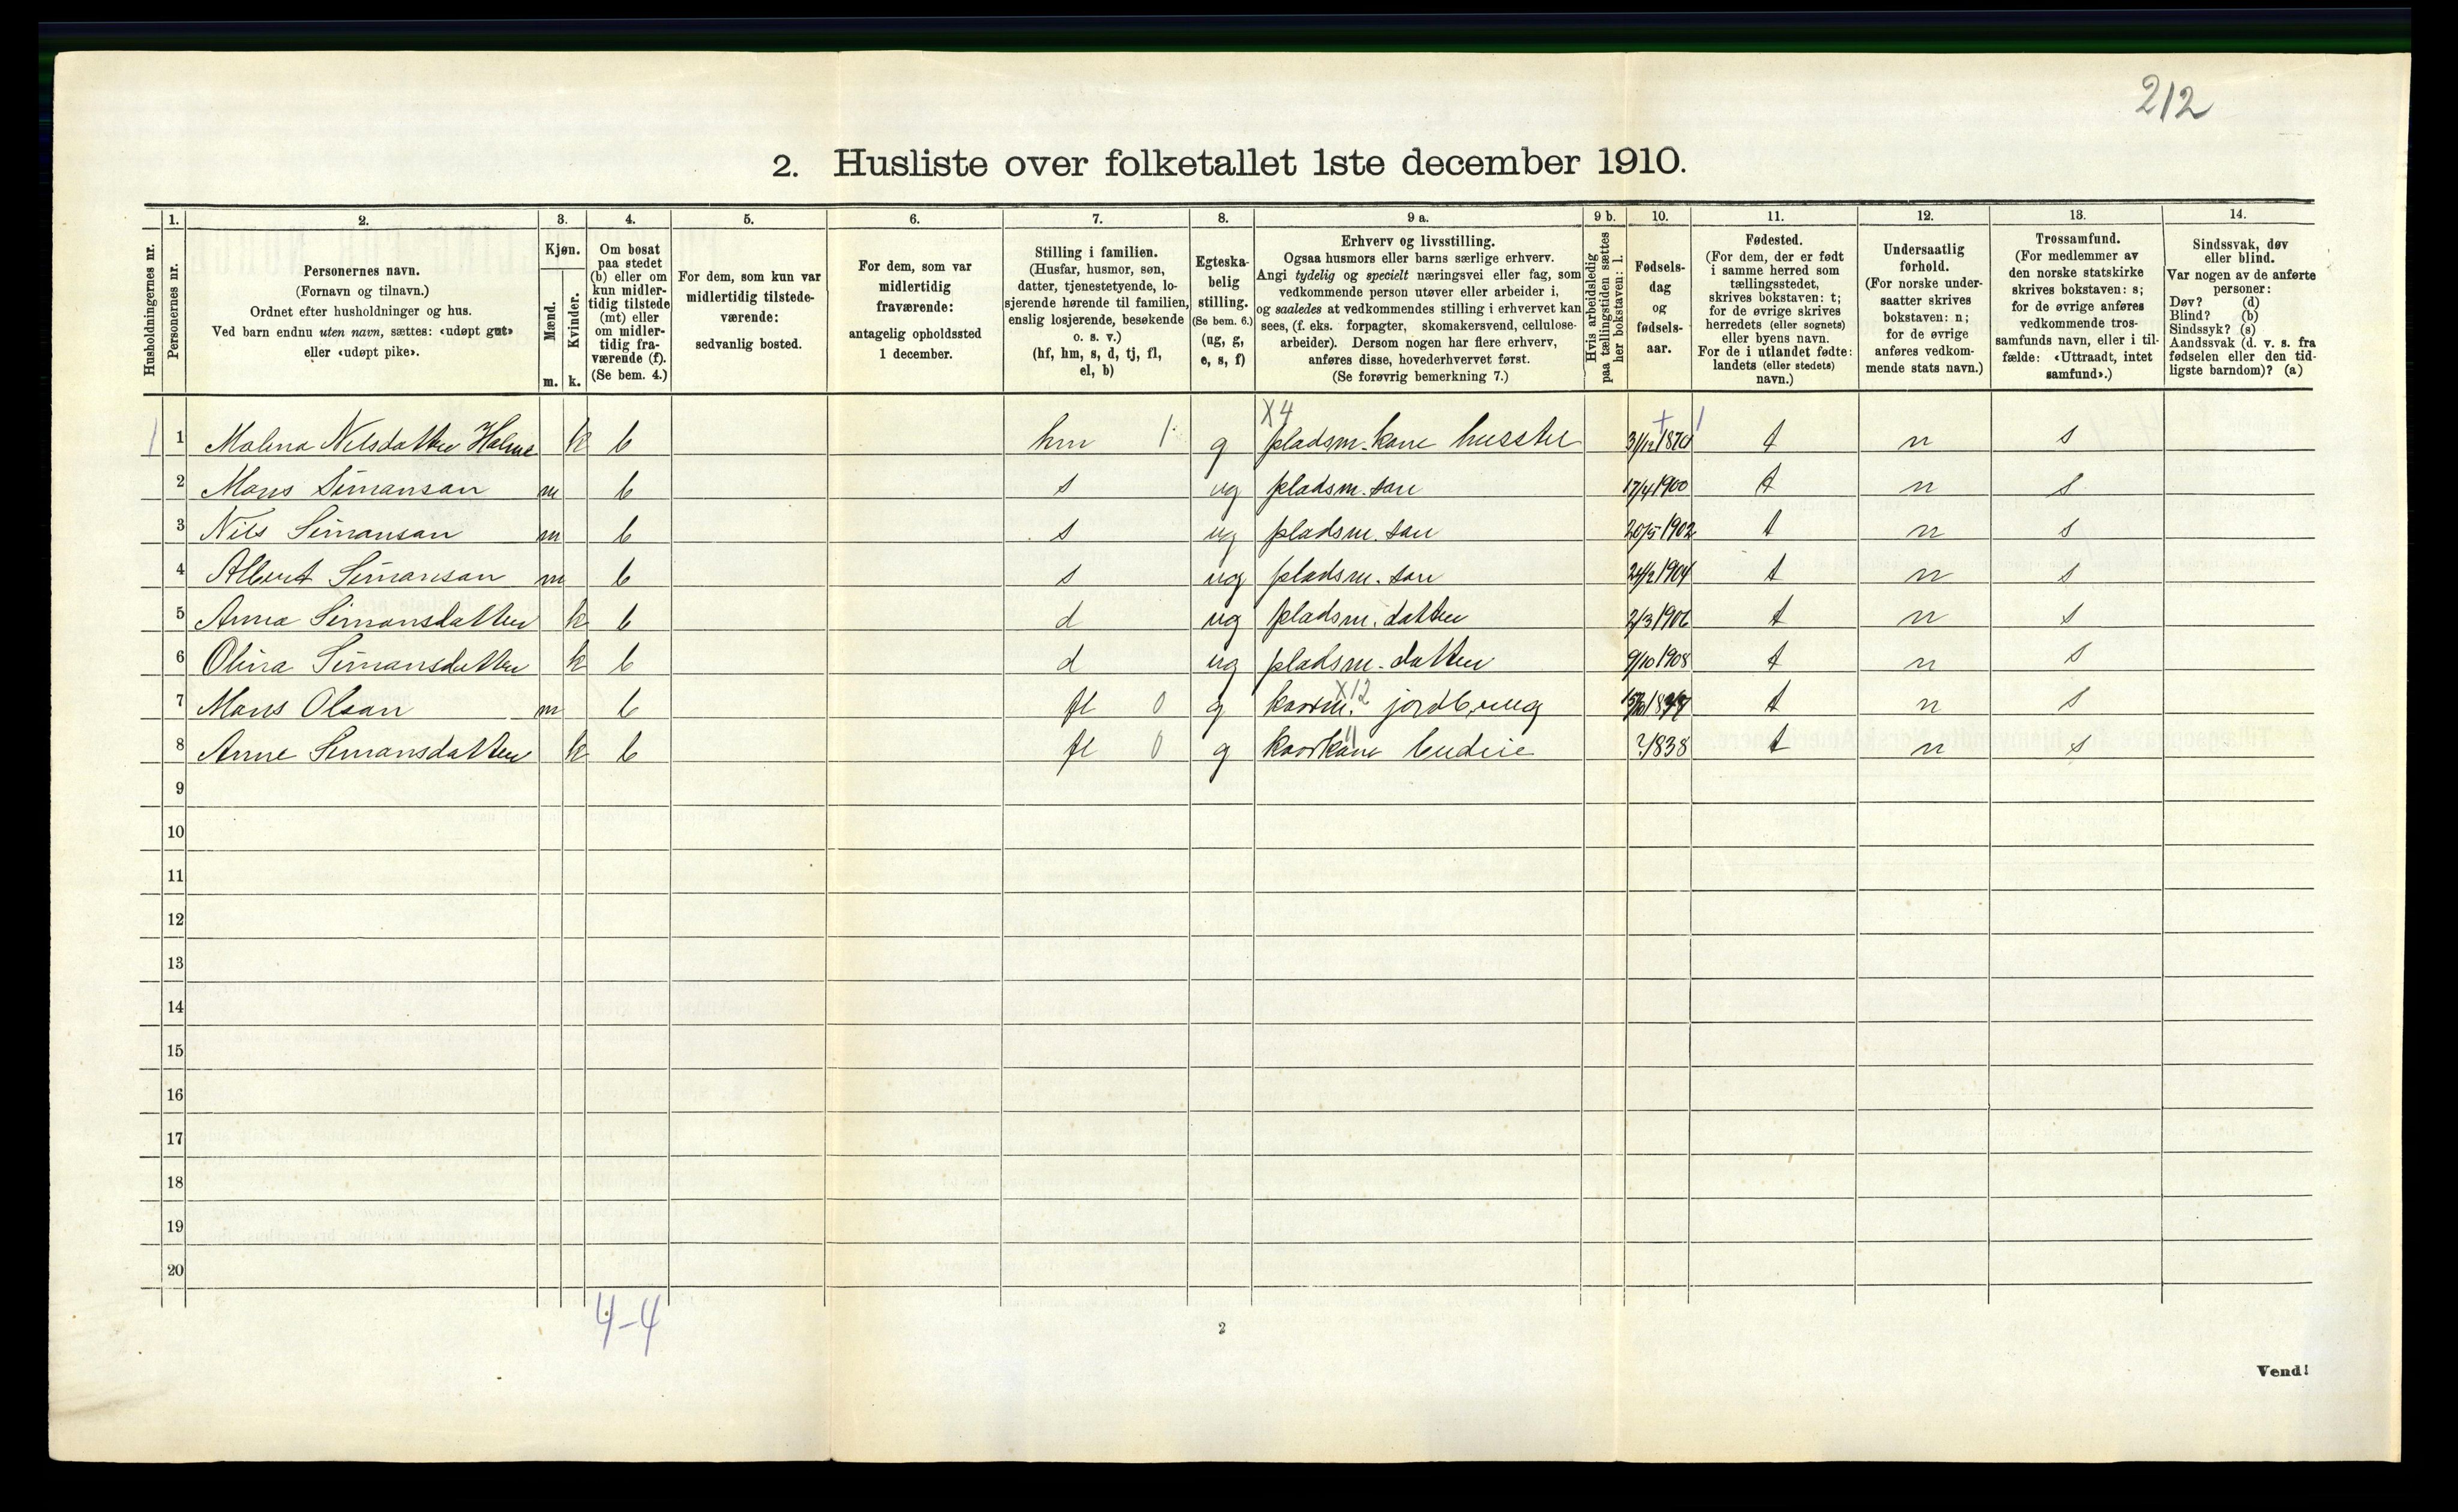 212
2. Husliste over folketallet 1ste december 1910.
1. 2. 3. 4. 5. 6. 7. 8. 9 a. 9 b. 10. 11. 12. 13. 14.
Husholdningernes nr.
Personernes nr.
Personernes navn.
(Fornavn og tilnavn.)
Ordnet efter husholdninger og hus.
Ved barn endnu uten navn, sættes: «udøpt gut»
eller «udøpt pike».
Kjøn.
Mænd.
Kvinder.
m. k.
Om bosat
paa stedet
(b) eller om
kun midler-
tidig tilstede
(mt) eller
om midler-
tidig fra-
værende (f).
(Se bem. 4.)
For dem, som kun var
midlertidig tilstede-
værende:
sedvanlig bosted.
For dem, som var
midlertidig
fraværende:
antagelig opholdssted
1 december.
Stilling i familien.
(Husfar, husmor, søn,
datter, tjenestetyende, lo-
sjerende hørende til familien,
enslig losjerende, besøkende
o. s. v.)
(hf, hm, s, d, tj, fl,
el, b)
Egteska-
belig
stilling.
(Se bem. 6.)
(ug, g,
e, s, f)
Erhverv og livsstilling.
Ogsaa husmors eller barns særlige erhverv.
Angi tydelig og specielt næringsvei eller fag, som
vedkommende person utøver eller arbeider i,
og saaledes at vedkommendes stilling i erhvervet kan
sees, (f. eks. forpagter, skomakersvend, cellulose-
arbeider). Dersom nogen har flere erhverv,
anføres disse, hovederhvervet først.
(Se forøvrig bemerkning 7.)
Hvis arbeidsledig
paa tællingstiden sættes
her bokstaven: l.
Fødsels-
dag
og
fødsels-
aar.
Fødested.
(For dem, der er født
i samme herred som
tællingsstedet,
skrives bokstaven: t;
for de øvrige skrives
herredets (eller sognets)
eller byens navn.
For de i utlandet fødte:
landets (eller stedets)
navn.)
Undersaatlig
forhold.
(For norske under-
saatter skrives
bokstaven: n;
for de øvrige
anføres vedkom-
mende stats navn.)
Trossamfund.
(For medlemmer av
den norske statskirke
skrives bokstaven: s;
for de øvrige anføres
vedkommende tros-
samfunds navn, eller i til-
fælde: «Uttraadt, intet
samfund».)
Sindssvak, døv
eller blind.
Var nogen av de anførte
personer:
Døv? (d)
Blind? (b)
Sindssyk? (s)
Aandssvak (d. v. s. fra
fødselen eller den tid-
ligste barndom)? (a)
X4
1 1 Malena Nilsdatter Holme k b hm 1 g pladsm. kone husstel 31/12 1870 t n s
2 Mons Simonson m b s ug pladsm. søn 17/4 1900 t n s
3 Nils Simonson m b s ug pladsm. søn 20/5 1902 t n s
4 Albert Simonson m b s ug pladsm. søn 1904 t n s
5 Anna Simonsdatter k b d ug pladsm. datter 2/3 1906 t n s
6 Olina Simonsdatter k b d ug pladsm. datter 9/10 1908 t n s
7 Mons Olson m b fl 0 g kaarm. X12 jordbrug t n s
8 Anne Simonsdatter k b fl 0 g kaarkone " budeie ?/1838 t n s
9
10
11
12
13
14
15
16
17
18
19
20
4-4
2
Vend!